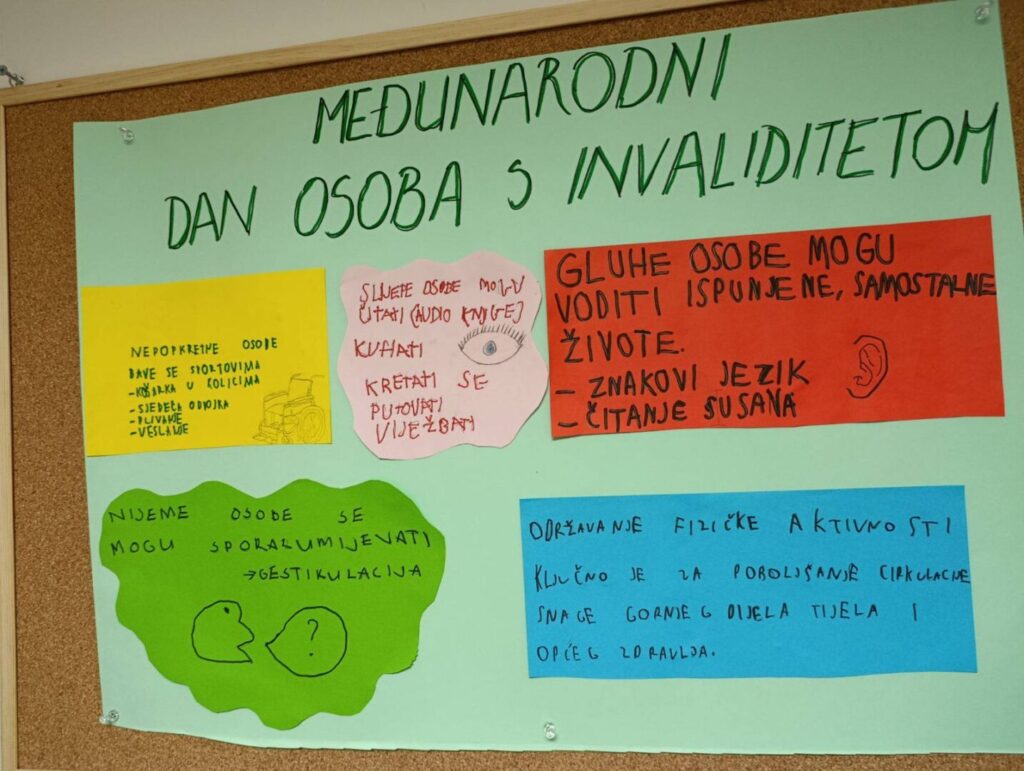 MEĐUNARODNI
DAN OSOBA S INVALIDITETOM
NEPOPKRETNE OSOBE
BAVE SE SPORTOVIMA
-KOŠARKA U KOLICIMA
-SJEDEĆA ODBOJKA
-PLIVANJE
-VESLANJE
SLIJEPE OSOBE MOGU
ČITATI (AUDIO KNJIGE)
KUHATI
KRETATI SE
PUTOVATI
VIJEŽBATI
GLUHE OSOBE MOGU
VODITI ISPUNJENE, SAMOSTALNE
ŽIVOTE.
- ZNAKOVI JEZIK
- ČITANJE SUSANA
NIJEME OSOBE SE
MOGU SPORAZUMIJEVATI
→GESTIKULACIJA
?
ODRŽAVANJE FIZIČKE AKTIVNOSTI
KLJUČNO JE ZA POBOLJŠANJE CIRKULACIJE
SNAGE GORNJEG DIJELA TIJELA I
OPĆEG ZDRAVLJA.